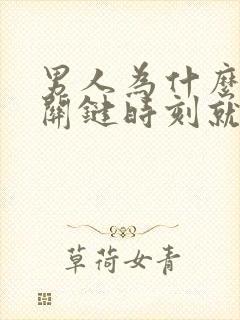 男人為什麼
關鍵時刻就
草荷女青